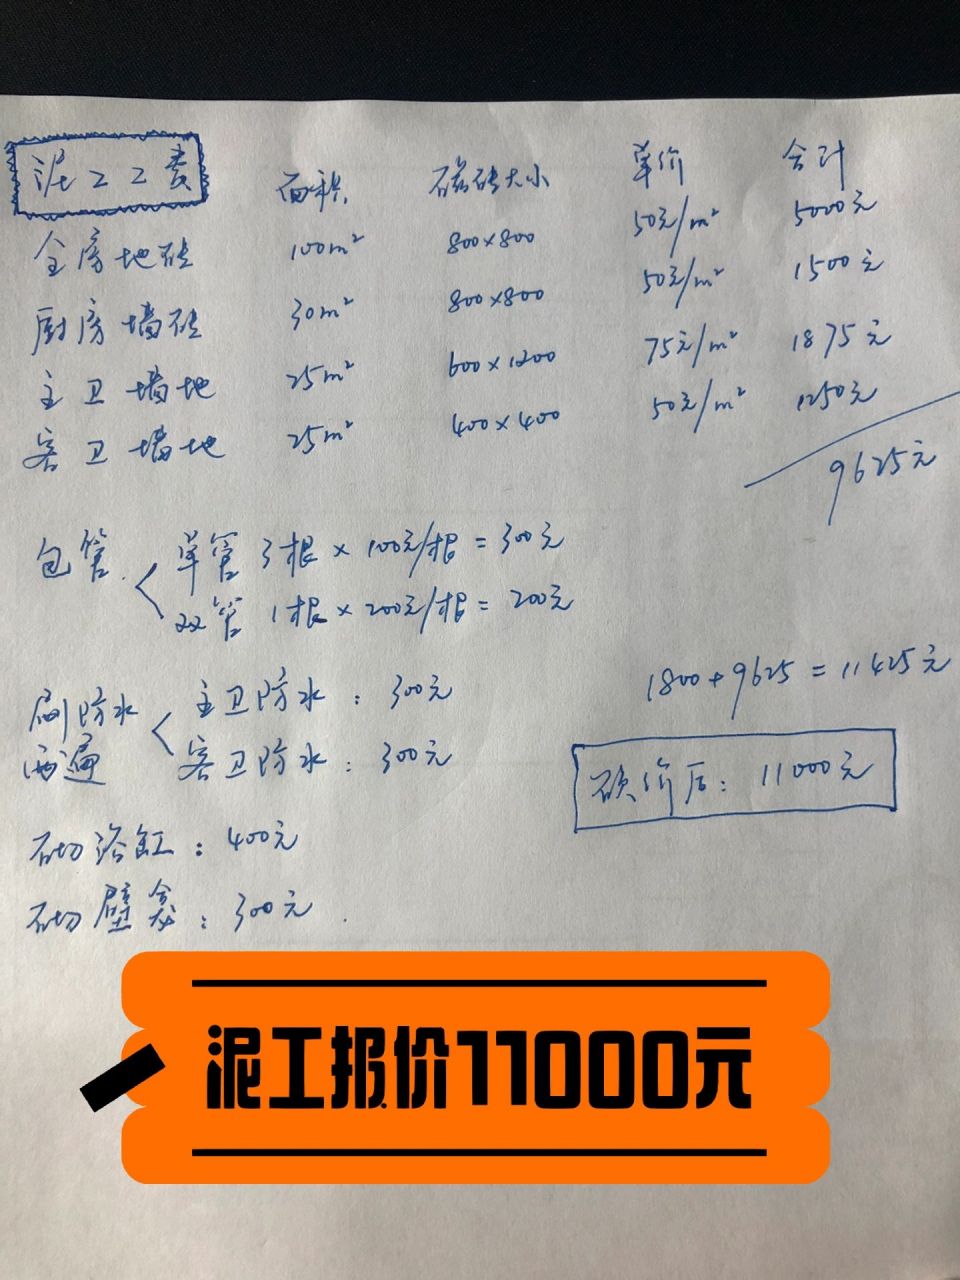 泥工工费 面积 磁砖大小 单价 合计
全房地砖 100m² 800×800 50元/m² 5000元
厨房墙砖 30m² 800×800 50元/m² 1500元
主卫墙地 25m² 600×1200 75元/m² 1875元
客卫墙地 25m² 400×400 50元/m² 1250元
9625元
包管 单管 3根×100元/根=300元
双管 1根×200元/根=200元
1800+9625=11425元
刷防水 主卫防水:300元
两遍 客卫防水:300元
砍价后:11000元
砌浴缸:400元
砌壁龛:300元.
泥工报价11000元